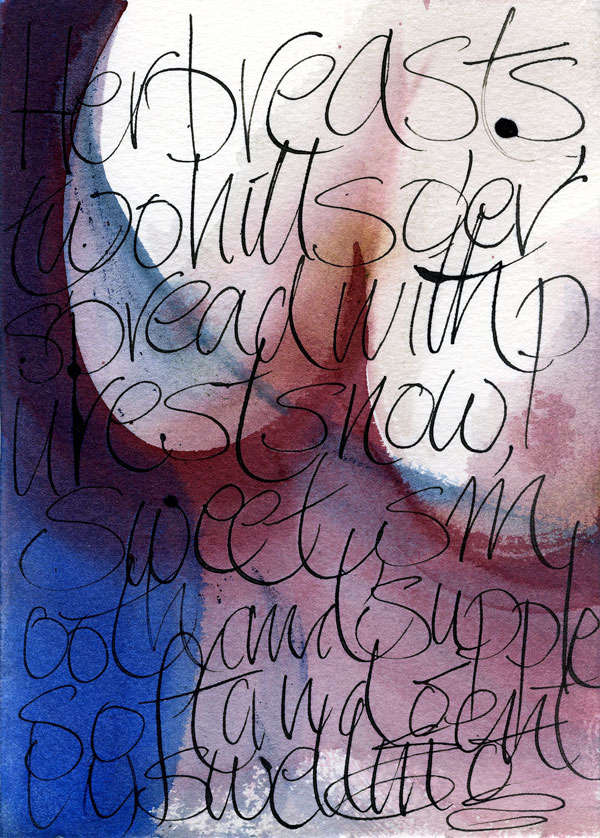 Her breasts,
two hills o'er
spread with p
urest snow,
Sweet, sm
ooth and supple
soft and gent
ly swelling